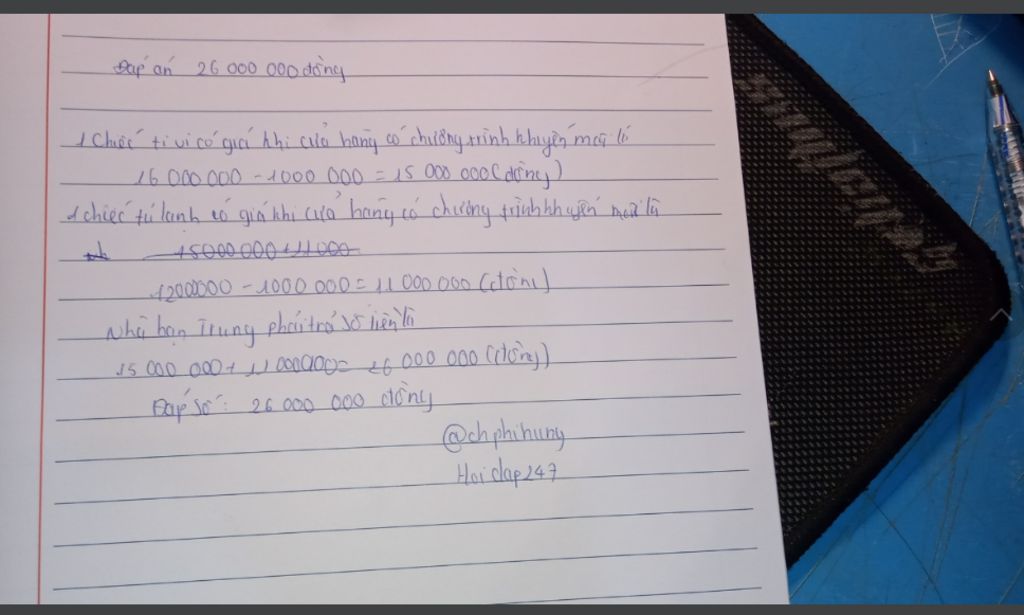 Đáp án 26 000 000 đồng
1 chiếc ti vi có giá khi cửa hàng có chương trình khuyến mãi là
16 000 000 - 1000 000 = 15 000 000 (đồng)
1 chiếc tủ lạnh có giá khi cửa hàng có chương trình khuyến mãi là
15000000+11000
1200000 - 1000 000 = 11 000 000 (đồng)
Nhà bạn Trung phải trả số tiền là
15 000 000 + 11 000000 = 26 000 000 (đồng)
Đáp số: 26 000 000 đồng
@chphihung
Hoidap247